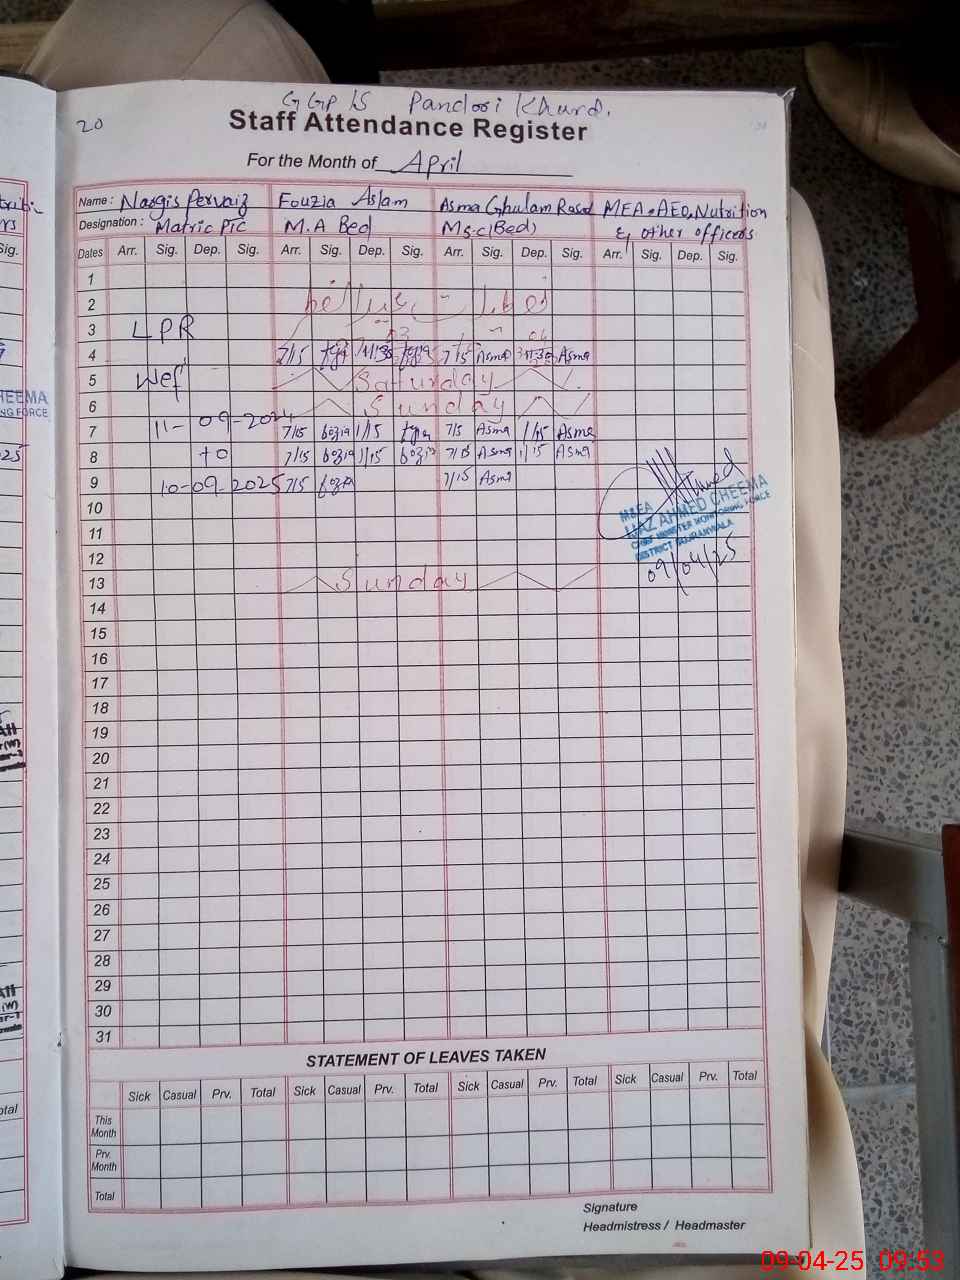 GGP/S Pandori Khurd.
20
Staff Attendance Register
For the Month of April
Name: Nargis Pervaiz Fouzia Aslam Asma Ghulam Rasol MEA, AEO, Nutrition
Designation: Matric PTC M.A Bed M.s.c (Bed) & other officers
Dates Arr. Sig. Dep. Sig. Arr. Sig. Dep. Sig. Arr. Sig. Dep. Sig. Arr. Sig. Dep. Sig.
1
2
3 LPR
4 7/15 7/15 Asma Asma
5 Wef Saturday
6 Sunday
7 11-09-2024 7/15 fozia 1/15 7/15 Asma 1/15 Asma
8 to 7/15 fozia 1/15 fozia 7/15 Asma 1/15 Asma
9 10-09-2025 7/15 fozia 7/15 Asma
10
11
12
13 Sunday
14
15
16
17
18
19
20
21
22
23
24
25
26
27
28
29
30
31
MEA
IJAZ AHMED CHEEMA
CHIEF MINISTER MONITORING FORCE
DISTRICT GUJRANWALA
09/04/25
STATEMENT OF LEAVES TAKEN
Sick Casual Prv. Total Sick Casual Prv. Total Sick Casual Prv. Total Sick Casual Prv. Total
This Month
Prv. Month
Total
Signature
Headmistress / Headmaster
09-04-25 09:53